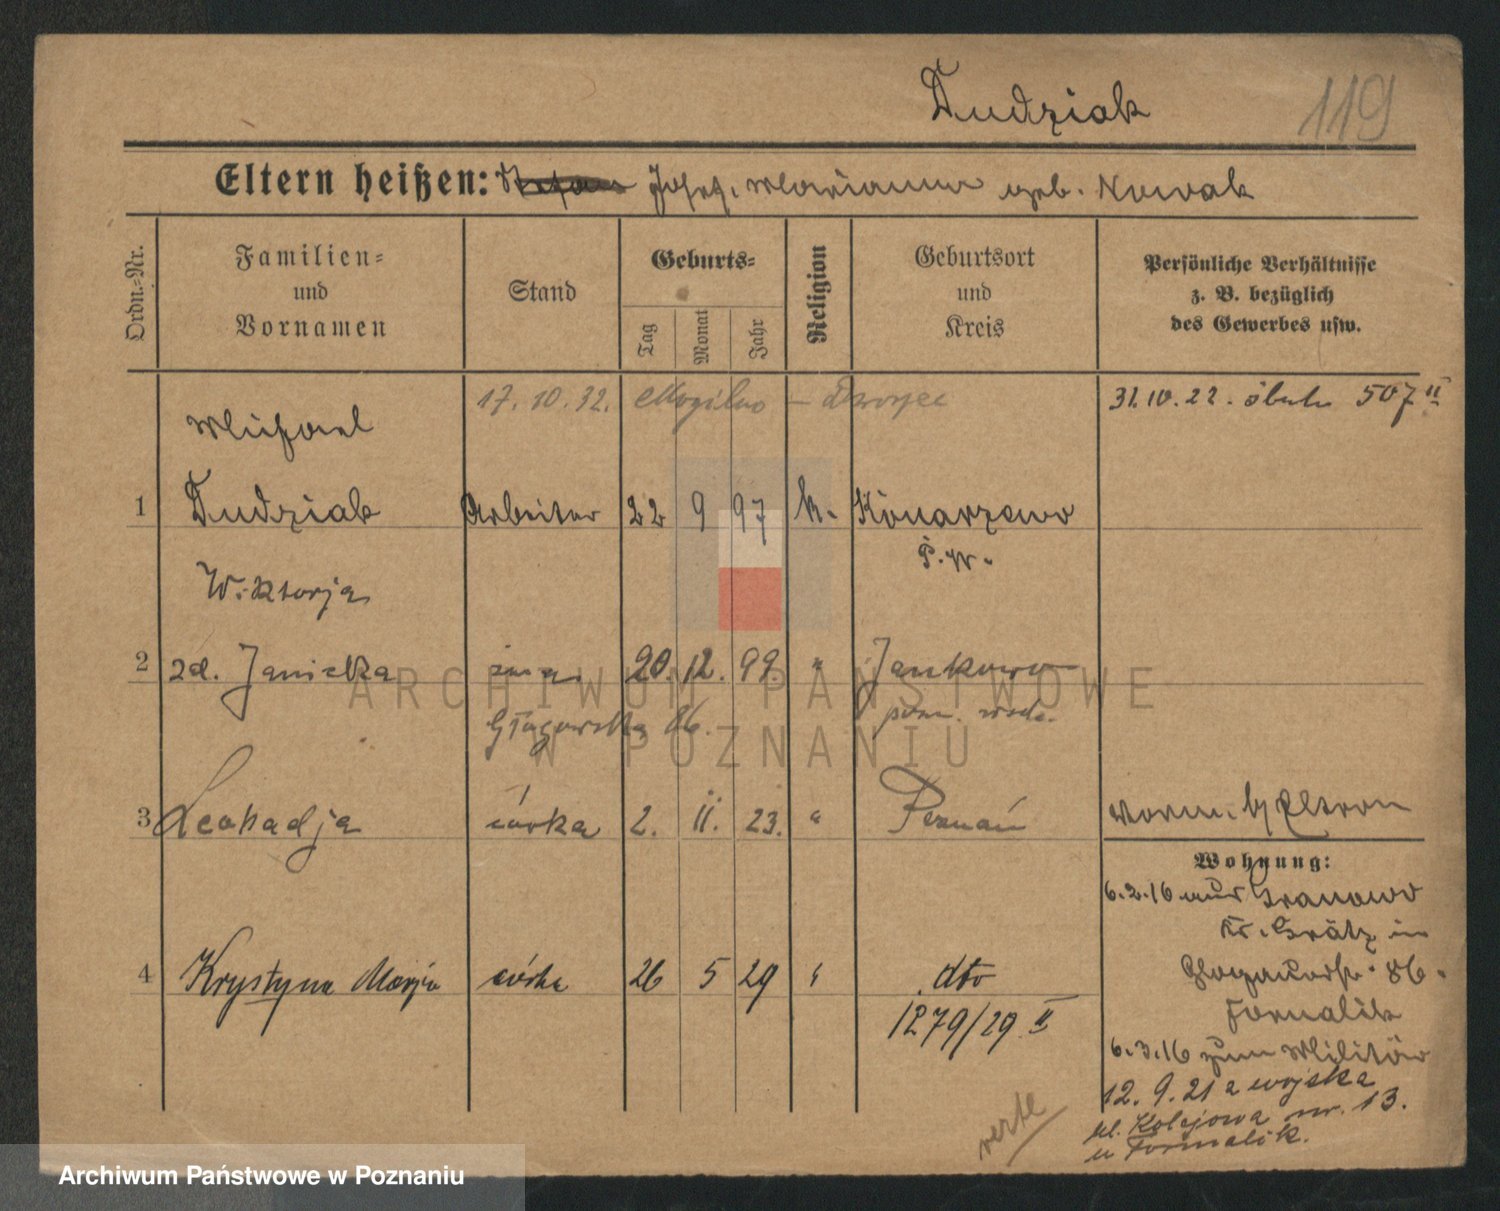 Dudziak 119
Eltern heißen: Josef, Marianna geb. Nowak
Ordn.-Nr.
Familien-
und
Vornamen
Stand
Geburts-
Tag
Monat
Jahr
Religion
Geburtsort
und
Kreis
Persönliche Verhältnisse
z. B. bezüglich
des Gewerbes usw.
17. 10. 32. Mogilno –
31.10.22. ślubu 507 II
Michael
1 Dudziak Arbeiter 22 9 97 k. Konarzewo
P.W.
Wiktorja
2 zd. Janicka żona 20. 12. 99. " Jankowo
Głogowska 86.
3 Leokadja córka 2. 11. 23. " Poznań
Vorm. Eltern
Wohnung:
6.2.16 aus Granowo
Kr. Grätz in
4 Krystyna Marja córka 26 5 29 " dto
Glogauerstr. 86.
1279/29 II
Fornalik
6.3.16 zum Militär
12. 9. 21 z wojska
ul. Kolejowa nr. 13.
u Fornalik.
verte
ARCHIWUM PAŃSTWOWE
W POZNANIU
Archiwum Państwowe w Poznaniu